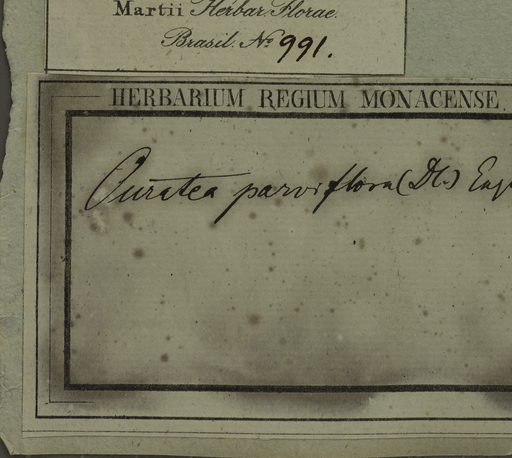 Martii Herbar. Florae.
Brasil. No 991.
HERBARIUM REGIUM MONACENSE
Ouratea parviflora (DC.) Eng